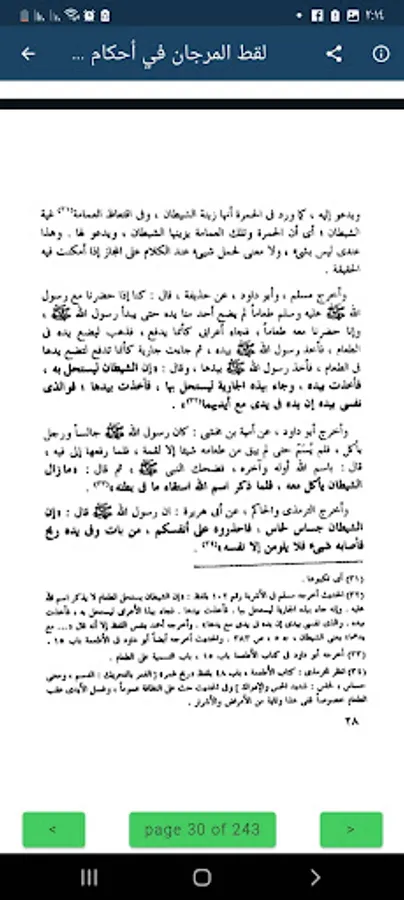 ٢:١٤
لقط المرجان في أحكام ...
ويدعو إليه ، كما ورد فى الحمرة أنها زينة الشيطان ، وفى اقتعاط العمامة(٣١) عمة
الشيطان ؛ أى أن الحمرة وتلك العمامة يزينها الشيطان ، ويدعو لها . وهذا
عندى ليس بشىء ، ولا معنى لحمل شىء عند الكلام على المجاز إذا أمكنت فيه
الحقيقة .
وأخرج مسلم ، وأبو داود ، عن حذيفة ، قال : كنا إذا حضرنا مع رسول
الله ﷺ عليه وسلم طعاماً لم يضع أحد منا يده حتى يبدأ رسول الله ﷺ ،
وإنا حضرنا معه طعاماً ، فجاء أعرابى كأنما يدفع ، فذهب ليضع يده فى
الطعام ، فأخذ رسول الله ﷺ بيده ، ثم جاءت جارية كأنما تدفع لتضع يدها
فى الطعام ، فأخذ رسول الله ﷺ بيدها ، وقال : «إن الشيطان ليستحل به ،
فأخذت بيده ، وجاء بهذه الجارية ليستحل بها ، فأخذت بيدها ؛ فوالذى
نفسى بيده إن يده فى يدى مع أيديهما»(٣٢) .
وأخرج أبو داود ، عن أمية بن مخشى : كان رسول الله ﷺ جالساً ورجل
يأكل ، فلم يُسَمّ حتى لم يبق من طعامه شيئا إلا لقمة ، فلما رفعها إلى فيه ،
قال : باسم الله أوله وآخره ، فضحك النبى ﷺ ، ثم قال : «مازال
الشيطان يأكل معه ، فلما ذكر اسم الله استقاء ما فى بطنه»(٣٣) .
وأخرج الترمذى والحاكم ، عن أبى هريرة : ان رسول الله ﷺ قال : «إن
الشيطان حساس لحاس ، فاحذروه على أنفسكم ، من بات وفى يده ريح
فأصابه شىء فلا يلومن إلا نفسه»(٣٤) .
(٣١) أى تكبوها .
(٣٢) الحديث أخرجه مسلم فى الأشربة رقم ١٠٢ بلفظ : «إن الشيطان يستحل الطعام لا يذكر اسم الله
عليه . وإنه جاء بهذه الجارية ليستحل بها . فأخذت بيدها . فجاء بهذا الأعرابى ليستحل به ، فأخذت
بيده ، والذى نفسى بيدى إن يده فى يدى مع يدها» . وأخرجه أحمد بنفس اللفظ إلا أنه قال «... مع
يدهما» يعنى الشيطان ، ٥ ، ص ٣٨٣ . والحديث أخرجه أيضاً أبو داود فى الأطعمة باب ١٥ .
(٣٣) أخرجه أبو داود فى كتاب الأطعمة باب ١٥ ، باب التسمية على الطعام .
(٣٤) انظر الترمذى : كتاب الأطعمة ، باب ٤٨ بلفظ «ريح غمر» [الغمر بالتحريك : الدسم ، ومعنى
حساس ، لحاس : شديد الحس والإدراك] وفى الحديث حث على النظافة عموماً ، وغسل الأيدى عقب
الطعام خصوصاً ففى هذا وقاية من الأمراض والأشرار .
٢٨
<
page 30 of 243
>